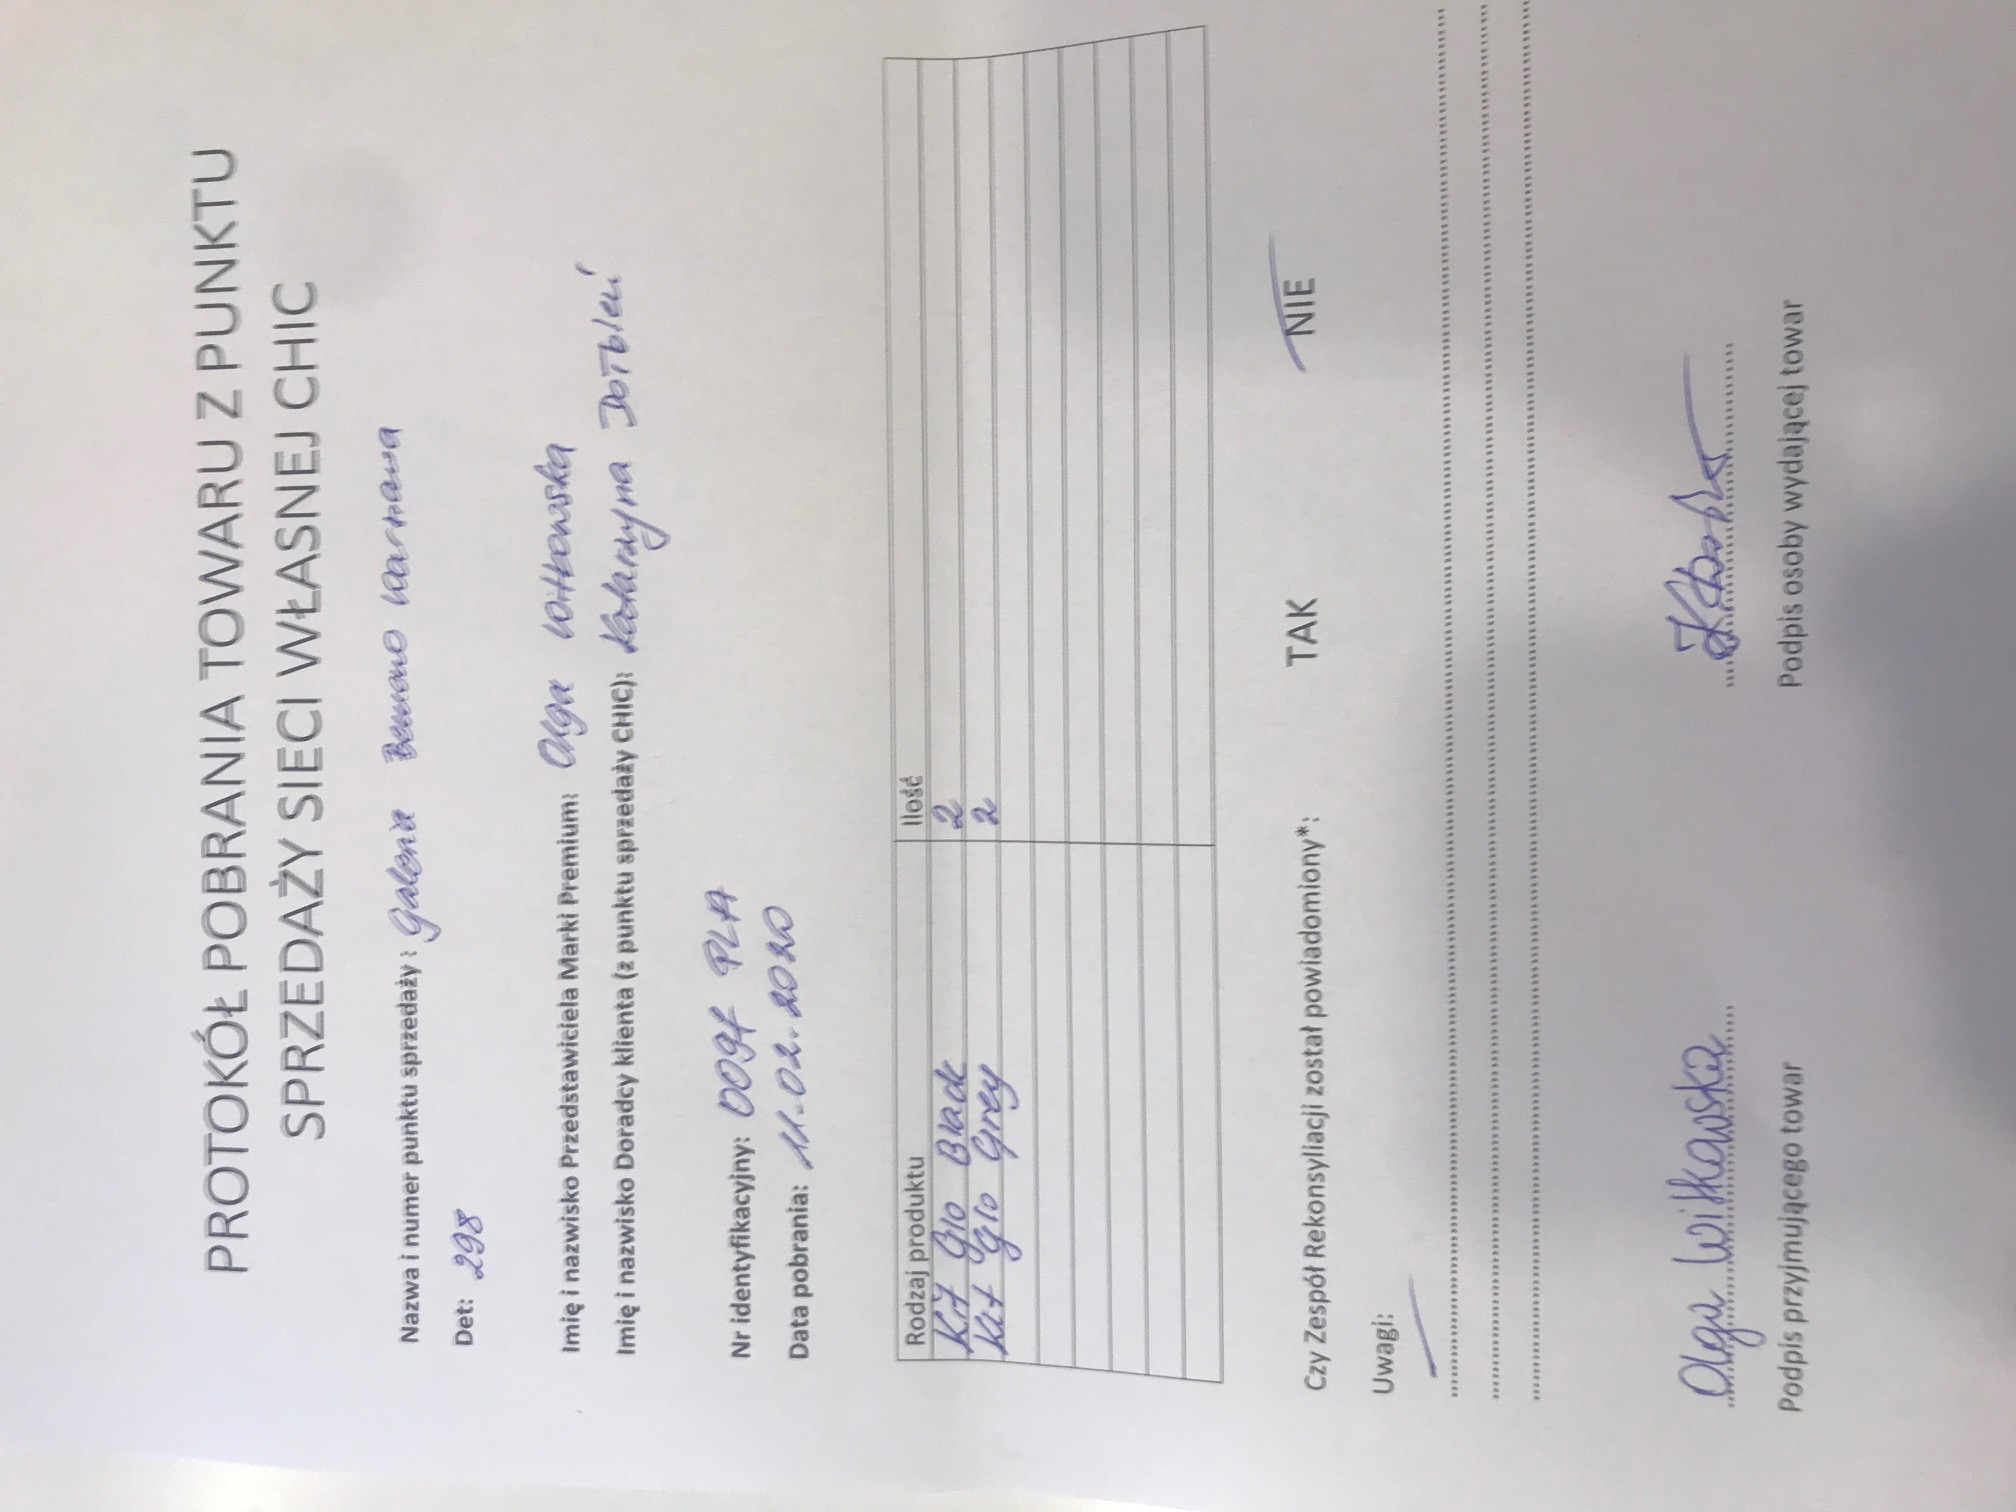 PROTOKÓŁ POBRANIA TOWARU Z PUNKTU
SPRZEDAŻY SIECI WŁASNEJ CHIC
Nazwa i numer punktu sprzedaży : Galeria Bemowo Warszawa
Det: 298
Imię i nazwisko Przedstawiciela Marki Premium: Olga Witkowska
Imię i nazwisko Doradcy klienta (z punktu sprzedaży CHIC): Katarzyna
Nr identyfikacyjny: 0097 PLA
Data pobrania: 11.02.2020
Rodzaj produktu Ilość
Kit Glo Black 2
Kit Glo Grey 2
Czy Zespół Rekonsyliacji został powiadomiony*: TAK NIE
Uwagi:
Olga Witkowska
Podpis przyjmującego towar Podpis osoby wydającej towar